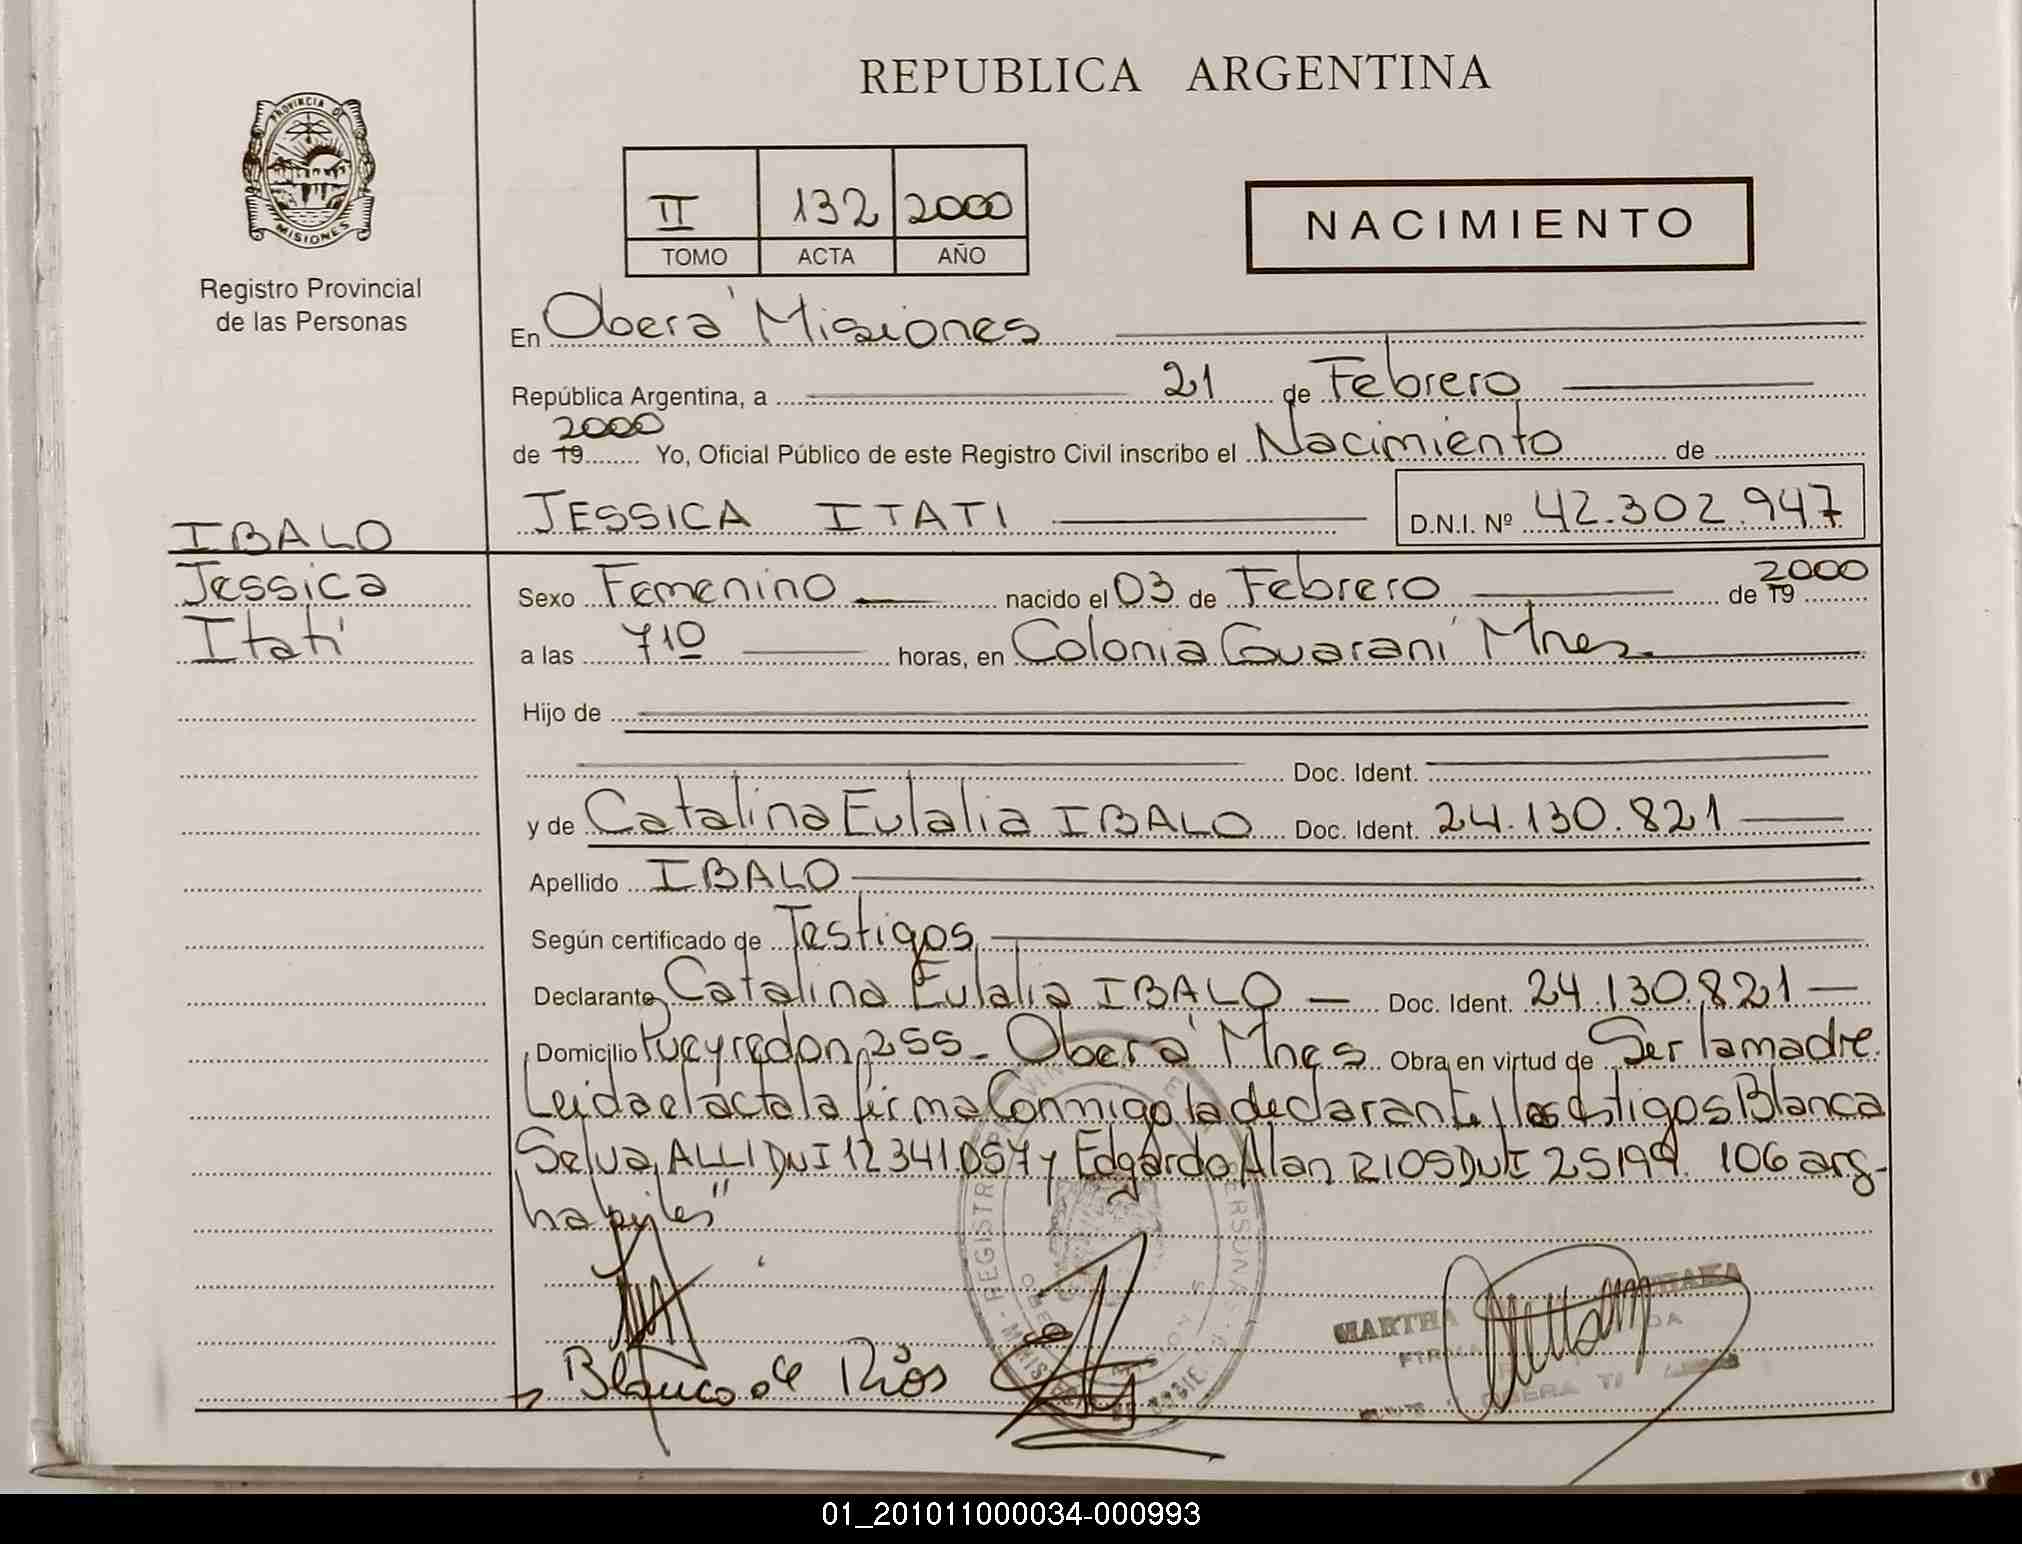 REPUBLICA ARGENTINA
PROVINCIA DE MISIONES
Registro Provincial
de las Personas
II 132 2000
TOMO ACTA AÑO
NACIMIENTO
En Oberá Misiones
República Argentina, a 21 de Febrero
2000
de 19 Yo, Oficial Público de este Registro Civil inscribo el Nacimiento de
JESSICA ITATI D.N.I. Nº 42.302.947
IBALO
Jessica
Itatí
Sexo Femenino nacido el 03 de Febrero de 19 2000
a las 710 horas, en Colonia Guaraní Mnes
Hijo de
Doc. Ident.
y de Catalina Eulalia IBALO Doc. Ident. 24.130.821
Apellido IBALO
Según certificado de Testigos
Declarante Catalina Eulalia IBALO Doc. Ident. 24.130.821
Domicilio Pueyredon 255 - Oberá Mnes Obra en virtud de Ser la madre.
Leida el acta la firma Conmigo la declarante y los testigos Blanca
Selva ALLI DNI 12341.057 y Edgardo Alan RIOS DNI 25199.106 arg-
habiles"
Blanca de Ríos
MARTHA
OBERA
01_201011000034-000993